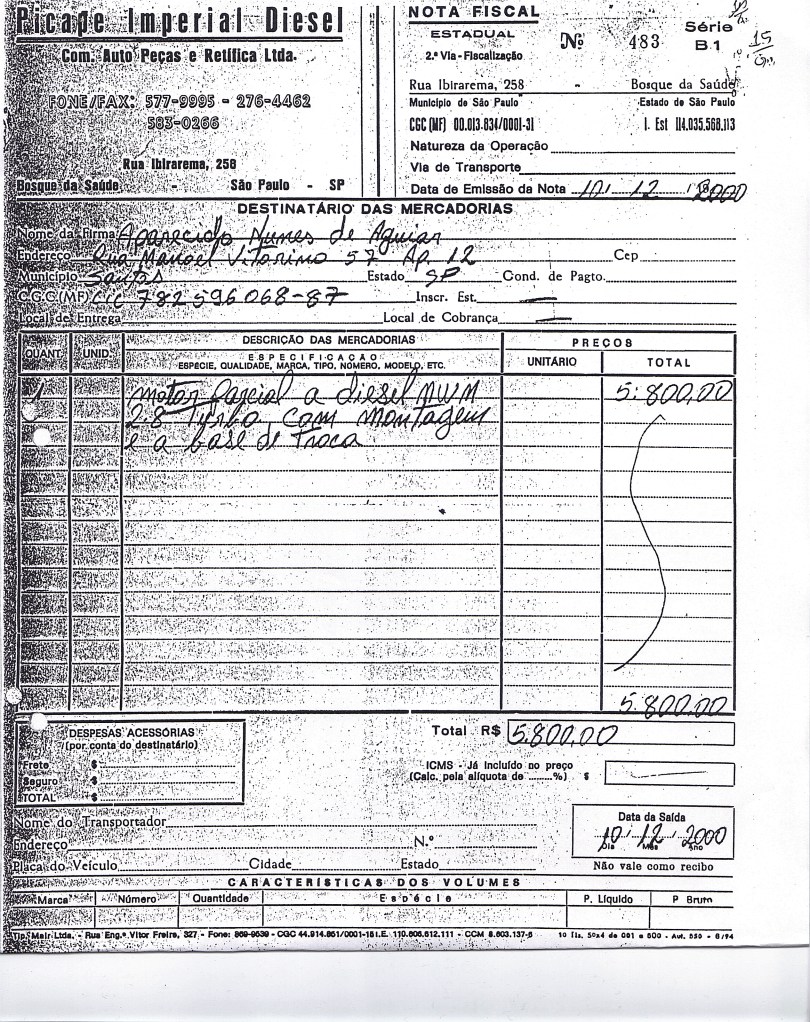 Picape Imperial Diesel
Com. Auto Peças e Retífica Ltda.
FONE/FAX: 577-9995 - 276-4462
583-0266
Rua Ibirarema, 258
Bosque da Saúde - São Paulo - SP
NOTA FISCAL
ESTADUAL
2.ª Via - Fiscalização
Nº 483
Série
B 1
15
Rua Ibirarema, 258 - Bosque da Saúde
Município de São Paulo Estado de São Paulo
CGC (MF) 00.013.834/0001-31 I. Est 114.035.568.113
Natureza da Operação
Via de Transporte
Data de Emissão da Nota 10 / 12 / 2000
DESTINATÁRIO DAS MERCADORIAS
Nome da Firma Aparecido Nunes de Aguiar
Endereço Rua Manoel Vitorino 57 Ap. 12 Cep
Município Santos Estado SP Cond. de Pagto.
C.G.C(MF) CIC 782596068-87 Inscr. Est.
Local de Entrega Local de Cobrança
QUANT. UNID. DESCRIÇÃO DAS MERCADORIAS PREÇOS
ESPECIFICAÇÃO
ESPÉCIE, QUALIDADE, MARCA, TIPO, NÚMERO, MODELO, ETC. UNITÁRIO TOTAL
1 motor parcial a diesel MWM 5.800,00
2.8 Turbo, com montagem
e a base de troca
5.800,00
DESPESAS ACESSÓRIAS
(por conta do destinatário)
Frete $
Seguro $
TOTAL $
Total R$ 5.800,00
ICMS - Já incluído no preço
(Calc. pela alíquota de ........%) $
Nome do Transportador
Endereço N.º
Placa do Veículo Cidade Estado
Data da Saída
10 / 12 / 2000
Dia Mês Ano
Não vale como recibo
CARACTERÍSTICAS DOS VOLUMES
Marca Número Quantidade Espécie P. Líquido P Bruto
Tip. Mair Ltda. - Rua Eng.º Vitor Freire, 327 - Fone: 869-9639 - CGC 44.914.851/0001-15 I.E. 110.606.612.111 - CCM 8.603.137-6 10 fls. 50x4 de 001 a 500 - Aut. 550 - 6/94